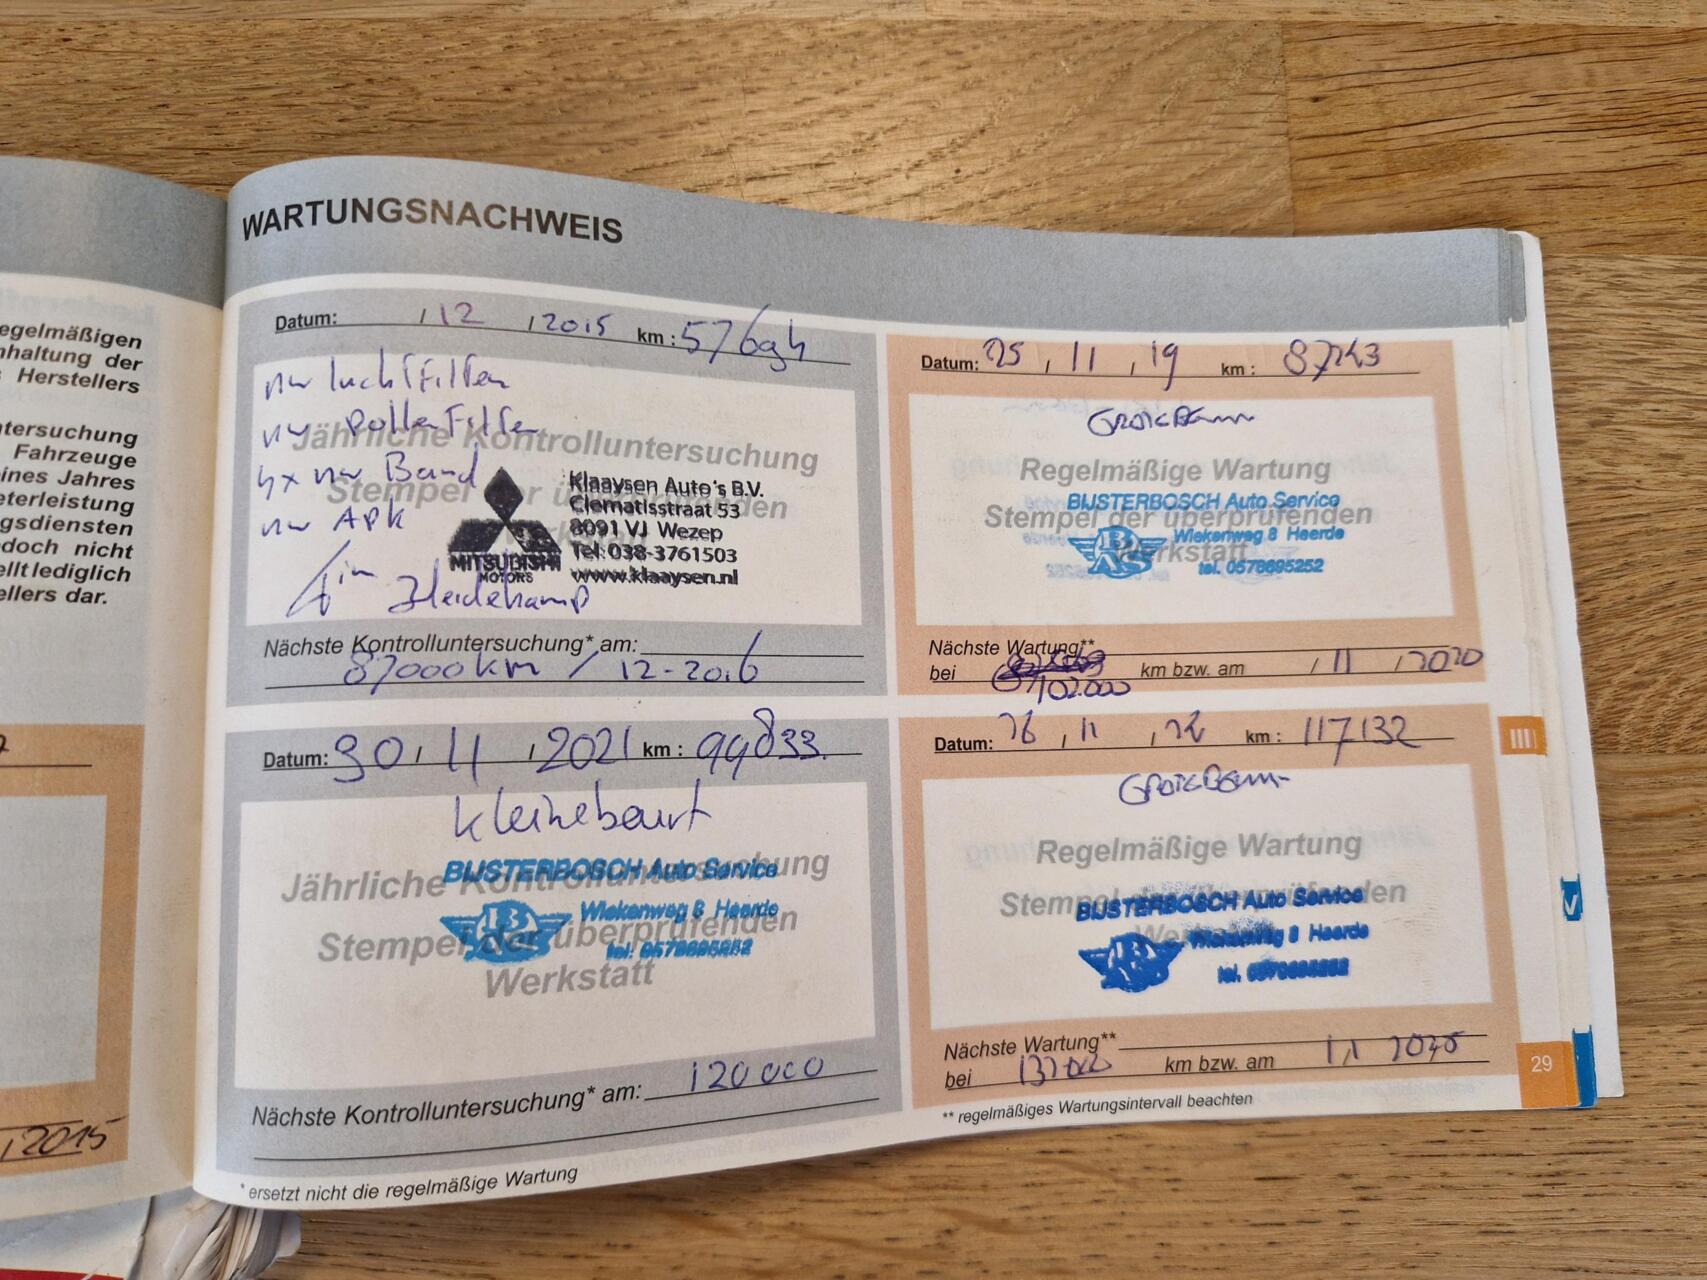 WARTUNGSNACHWEIS
egelmäßigen
nhaltung der
Herstellers
ntersuchung
Fahrzeuge
eines Jahres
eterleistung
gsdiensten
doch nicht
ellt lediglich
ellers dar.
, 2015
Datum: / 12 / 2015 km :
nw luchtfilter
nw pollenfilter
4x nw Band
nw APK
Jährliche Kontrolluntersuchung
Stempel der überprüfenden
Werkstatt
MITSUBISHI
MOTORS
Klaaysen Auto's B.V.
Clematisstraat 53
8091 VJ Wezep
Tel: 038-3761503
www.klaaysen.nl
Nächste Kontrolluntersuchung* am:
87000 km / 12-2016
Datum: 25 , 11 , 19 km :
Grote Beurt
Regelmäßige Wartung
Stempel der überprüfenden
Werkstatt
BIJSTERBOSCH Auto Service
BAS
Wiekenweg 8 Heerde
tel. 0578695252
Nächste Wartung**
bei 102.000 km bzw. am / 11 / 2020
Datum: 30 , 11 , 2021 km : 99833
kleine beurt
Jährliche Kontrolluntersuchung
Stempel der überprüfenden
Werkstatt
BIJSTERBOSCH Auto Service
BAS
Wiekenweg 8 Heerde
tel. 0578695252
Nächste Kontrolluntersuchung* am: 120000
* ersetzt nicht die regelmäßige Wartung
Datum: , 11 , km : 117132
Grote Beurt
Regelmäßige Wartung
Stempel der überprüfenden
Werkstatt
BIJSTERBOSCH Auto Service
BAS
Wiekenweg 8 Heerde
tel. 0578695252
Nächste Wartung**
bei 132000 km bzw. am
** regelmäßiges Wartungsintervall beachten
III
V
29